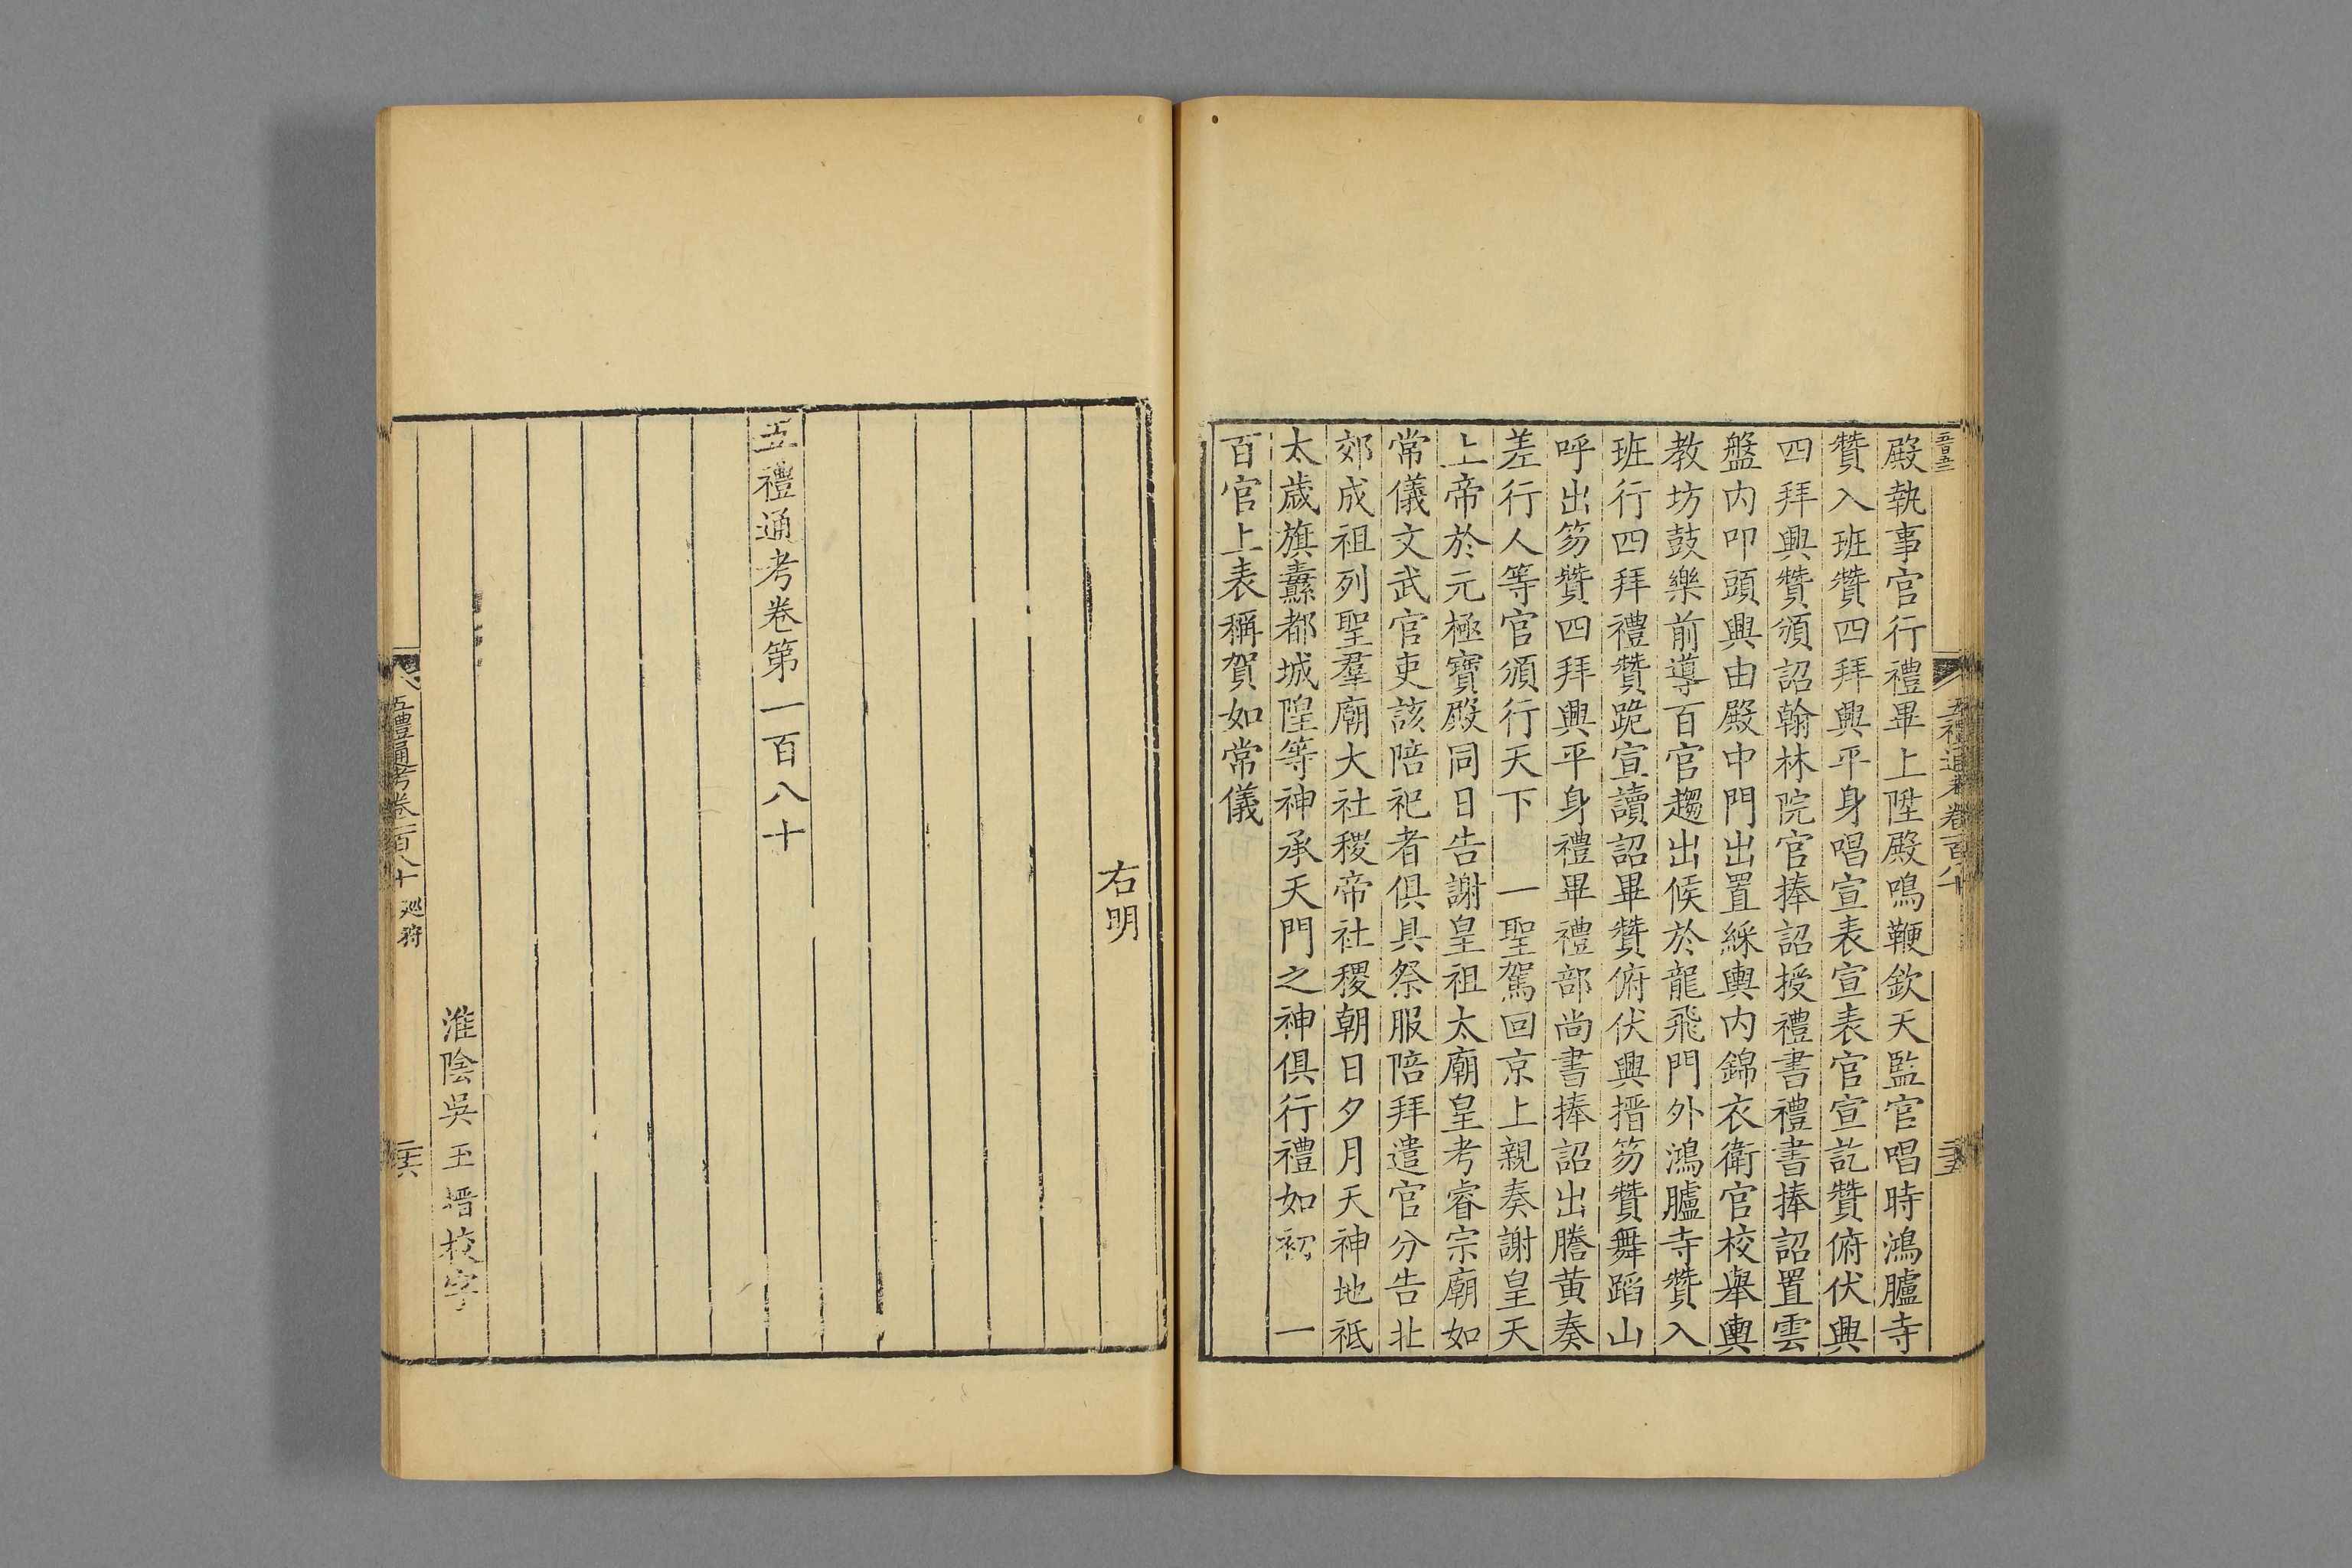 五禮通考卷一百八十
殿執事官行禮畢上陞殿鳴鞭欽天監官唱時鴻臚寺
贊入班贊四拜興平身唱宣表宣表官宣訖贊俯伏興
四拜興贊頒詔翰林院官捧詔授禮書禮書捧詔置雲
盤内叩頭興由殿中門出置綵輿内錦衣衛官校舉輿
教坊鼓樂前導百官趨出候於龍飛門外鴻臚寺贊入
班行四拜禮贊跪宣讀詔畢贊俯伏興搢笏贊舞蹈山
呼出笏贊四拜興平身禮畢禮部尚書捧詔出謄黄奏
差行人等官頒行天下　一聖駕回京上親奏謝皇天
上帝於元極寶殿同日告謝皇祖太廟皇考睿宗廟如
常儀文武官吏該陪祀者俱具祭服陪拜遣官分告北
郊成祖列聖羣廟大社稷帝社稷朝日夕月天神地祗
太歲旗纛都城隍等神承天門之神俱行禮如初　一
百官上表稱賀如常儀
右明
五禮通考卷第一百八十
淮陰吳玉搢校字
五禮通考卷一百八十 巡狩